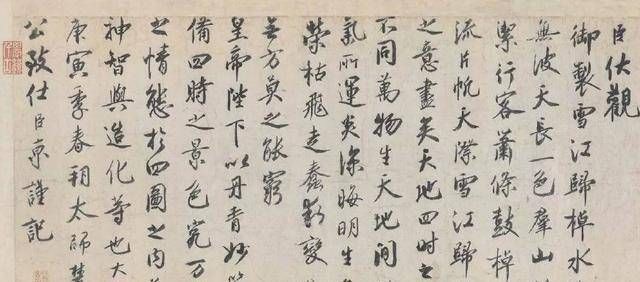 臣伏觀
御製雪江歸棹水
無波天長一色羣山
潔行客蕭條鼓棹
流片帆天際雪江歸
之意盡矣天地四時之
不同萬物生天地間
氣所運炎涼晦明生
榮枯飛走蠢動變
無方莫之能窮
皇帝陛下以丹青妙筆
備四時之景色究万
之情態於四圖之內
神智與造化等也大
庚寅季春朔太師楚
公致仕臣京謹記